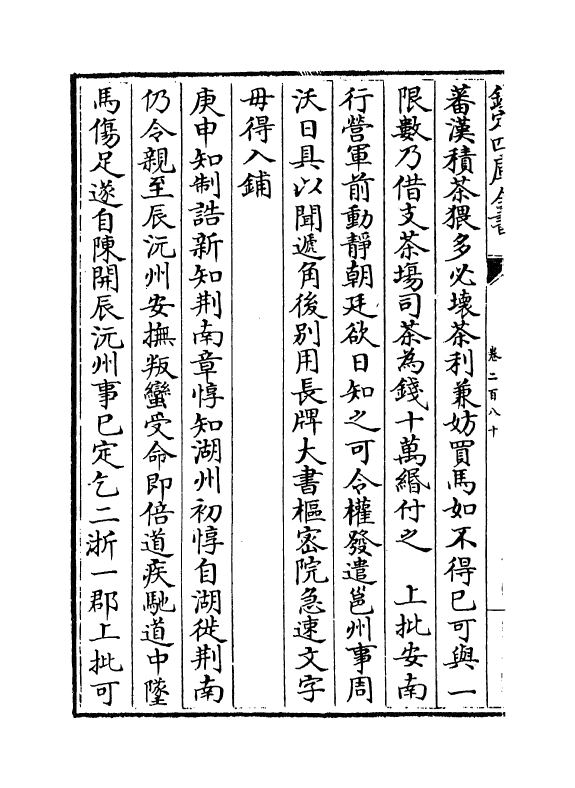 欽定四庫全書
卷二百八十
蕃漢積茶猥多必壞茶利兼妨買馬如不得已可與一
限數乃借支茶塲司茶為錢十萬緡付之　上批安南
行營軍前動靜朝廷欲日知之可令權發遣邕州事周
沃日具以聞遞角後別用長牌大書樞密院急速文字
毋得入鋪
庚申知制誥新知荆南章惇知湖州初惇自湖徙荆南
仍令親至辰沅州安撫叛蠻受命即倍道疾馳道中墜
馬傷足遂自陳開辰沅州事已定乞二浙一郡上批可